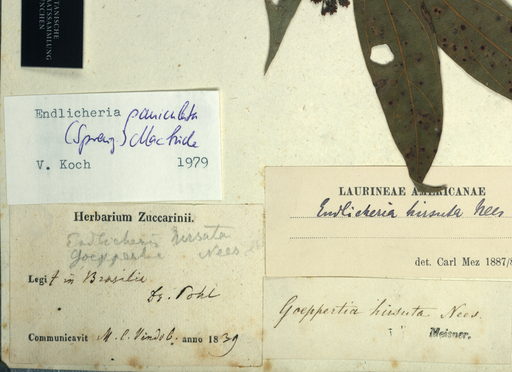 BOTANISCHE
STAATSSAMMLUNG
MÜNCHEN
Endlicheria paniculata
(Spreng.) Macbride
V. Koch 1979
Herbarium Zuccarinii.
Endlicheria hirsuta
Goeppertia Nees
Legit in Brasilia
Dr. Pohl
Communicavit M. C. Vindob. anno 1839
LAURINEAE AMERICANAE
Endlicheria hirsuta Nees
det. Carl Mez 1887/8
Goeppertia hirsuta Nees.
Meisner.